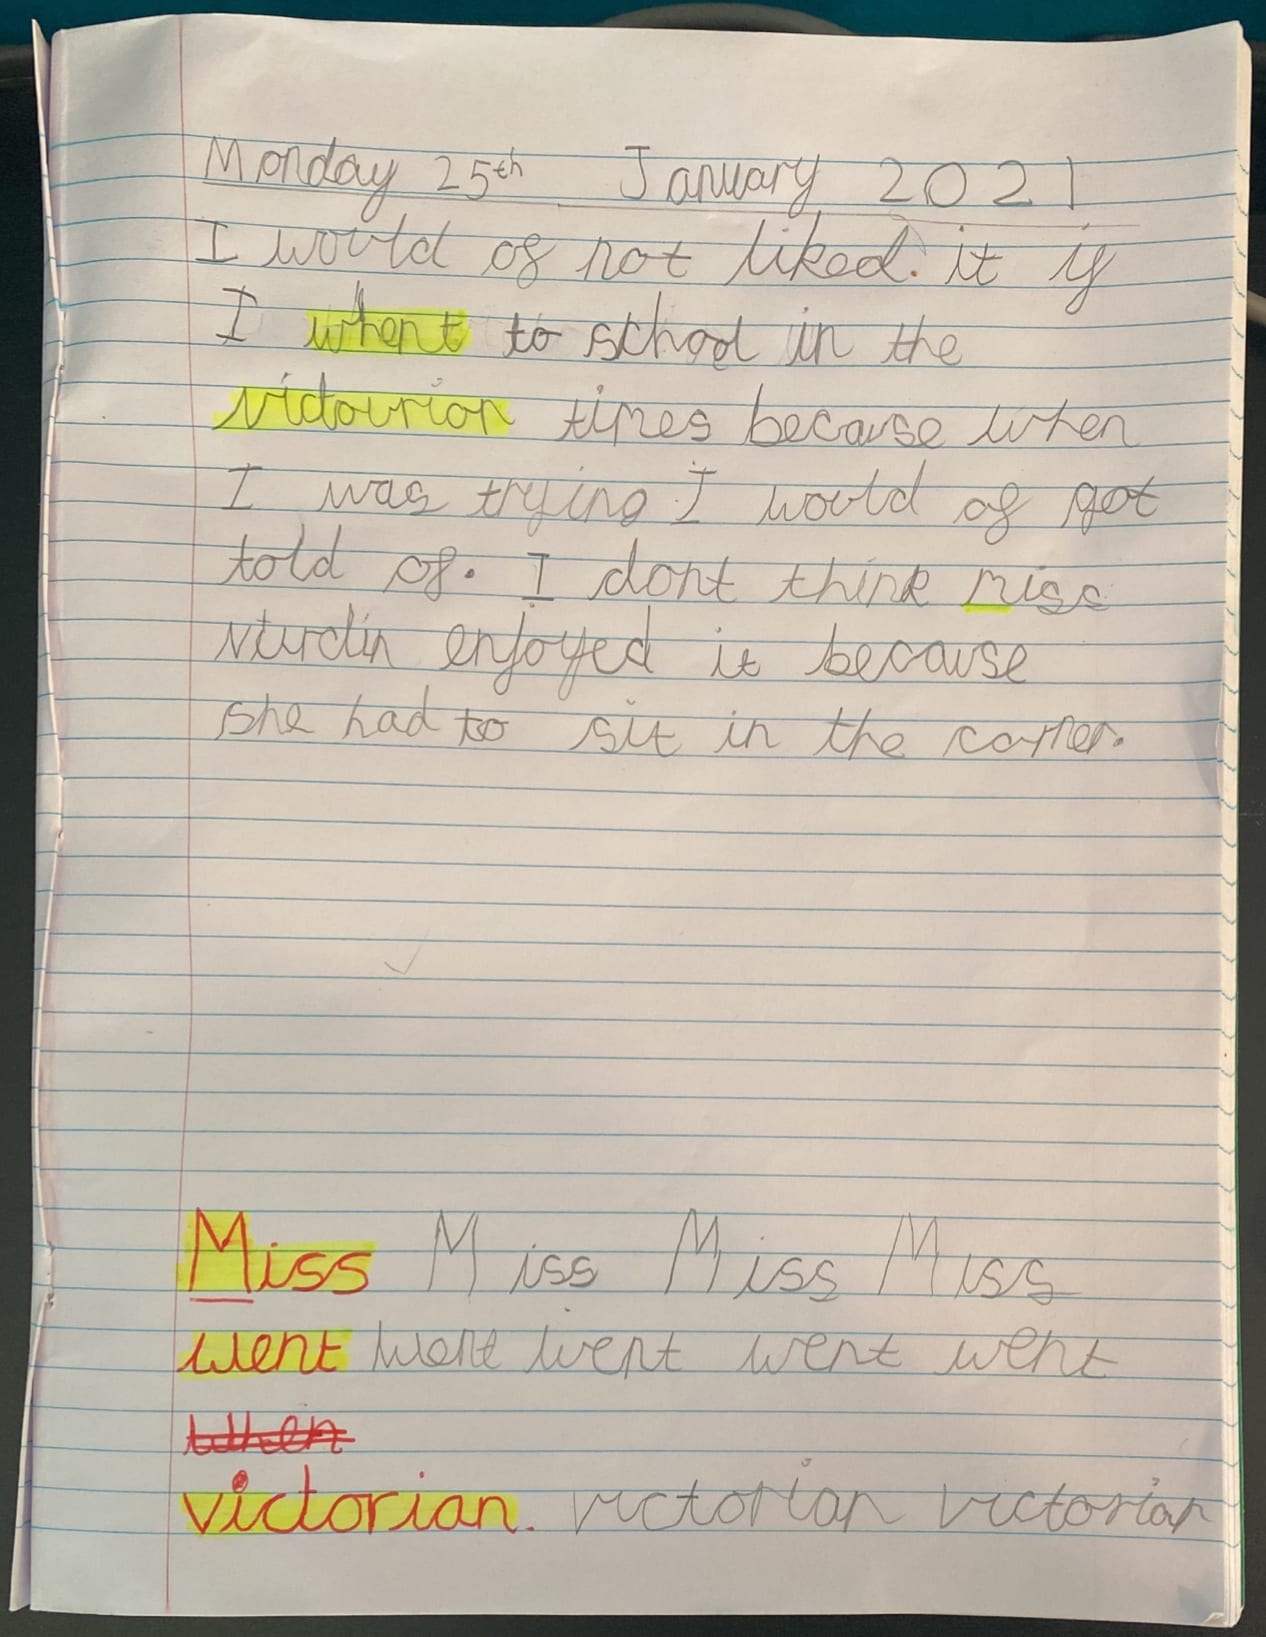 Monday 25th January 2021
I would of not liked. it if
I whent to school in the
victourion times because when
I was trying I would of got
told of. I dont think miss
enjoyed it because
she had to sit in the corner.
Miss Miss Miss Miss
went went went went went
when
victorian. victorian victorian